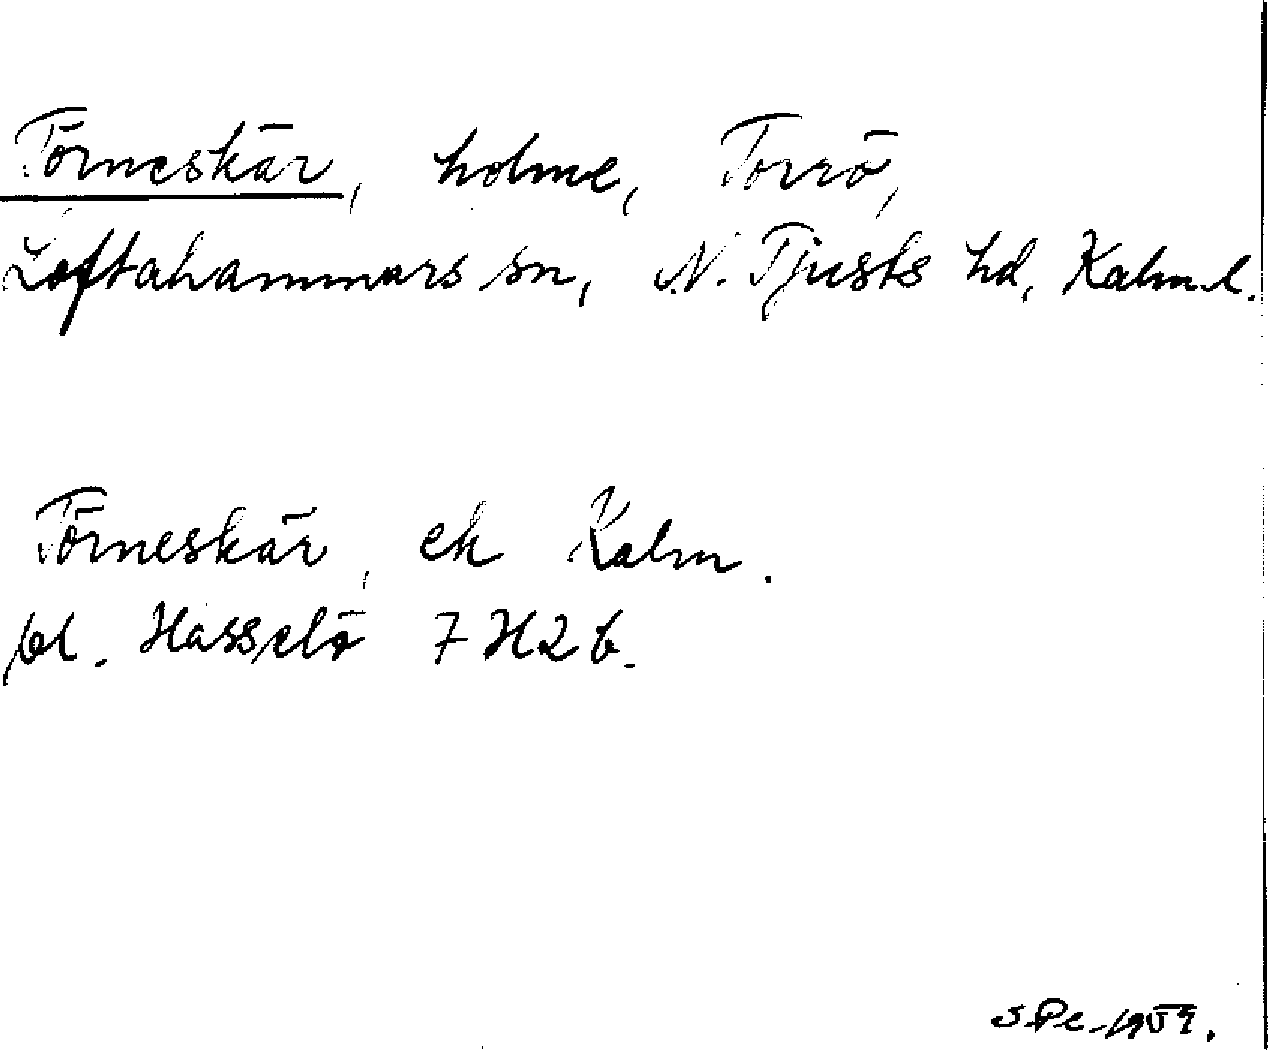 Törneskär, holme, Torrö,
Loftahammars sn, N. Tjusts hd, Kalm. l.
Törneskär, ek Kalm.
bl. Hasselö 7 H 2 b.